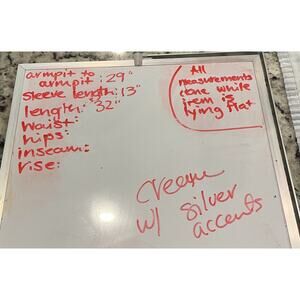 armpit to
armpit: 29"
sleeve length: 13"
length: 32"
waist:
hips:
inseam:
rise:
All
measurements
done while
item is
lying flat
creme
w/ silver
accents